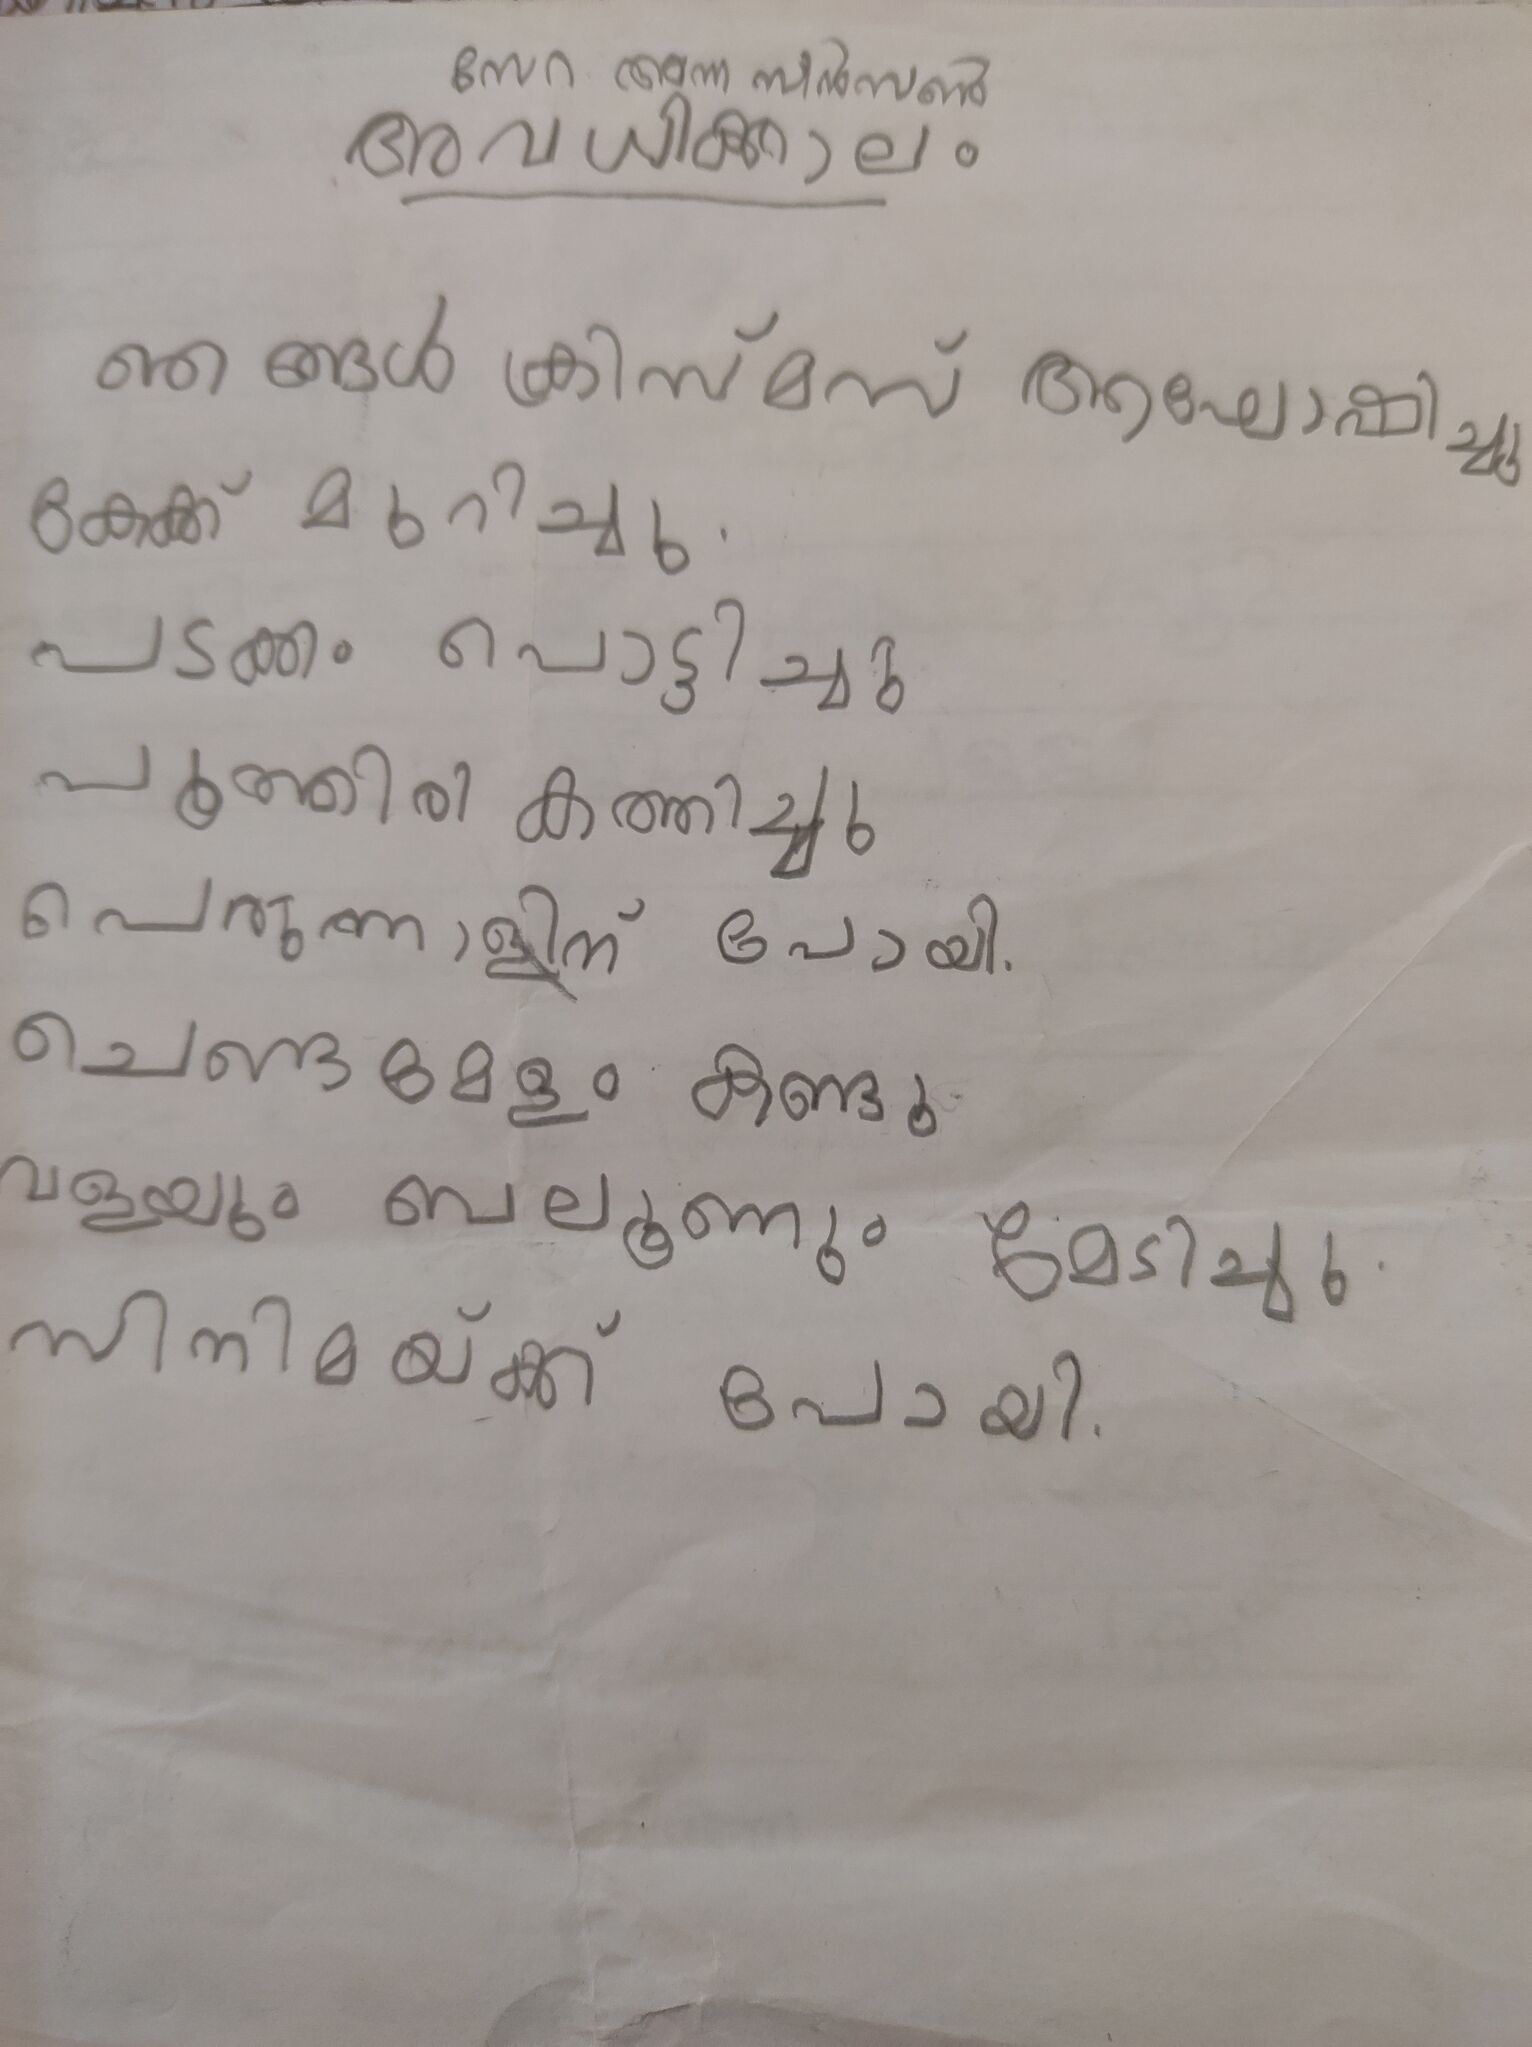 സേറ അന്ന സിൻസൺ
അവധിക്കാലം
ഞങ്ങൾ ക്രിസ്മസ് ആഘോഷിച്ചു
കേക്ക് മുറിച്ചു.
പടക്കം പൊട്ടിച്ചു
പൂത്തിരി കത്തിച്ചു
പെരുന്നാളിന് പോയി.
ചെണ്ടമേളം കണ്ടു
വളയും ബലൂണും മേടിച്ചു.
സിനിമയ്ക്ക് പോയി.